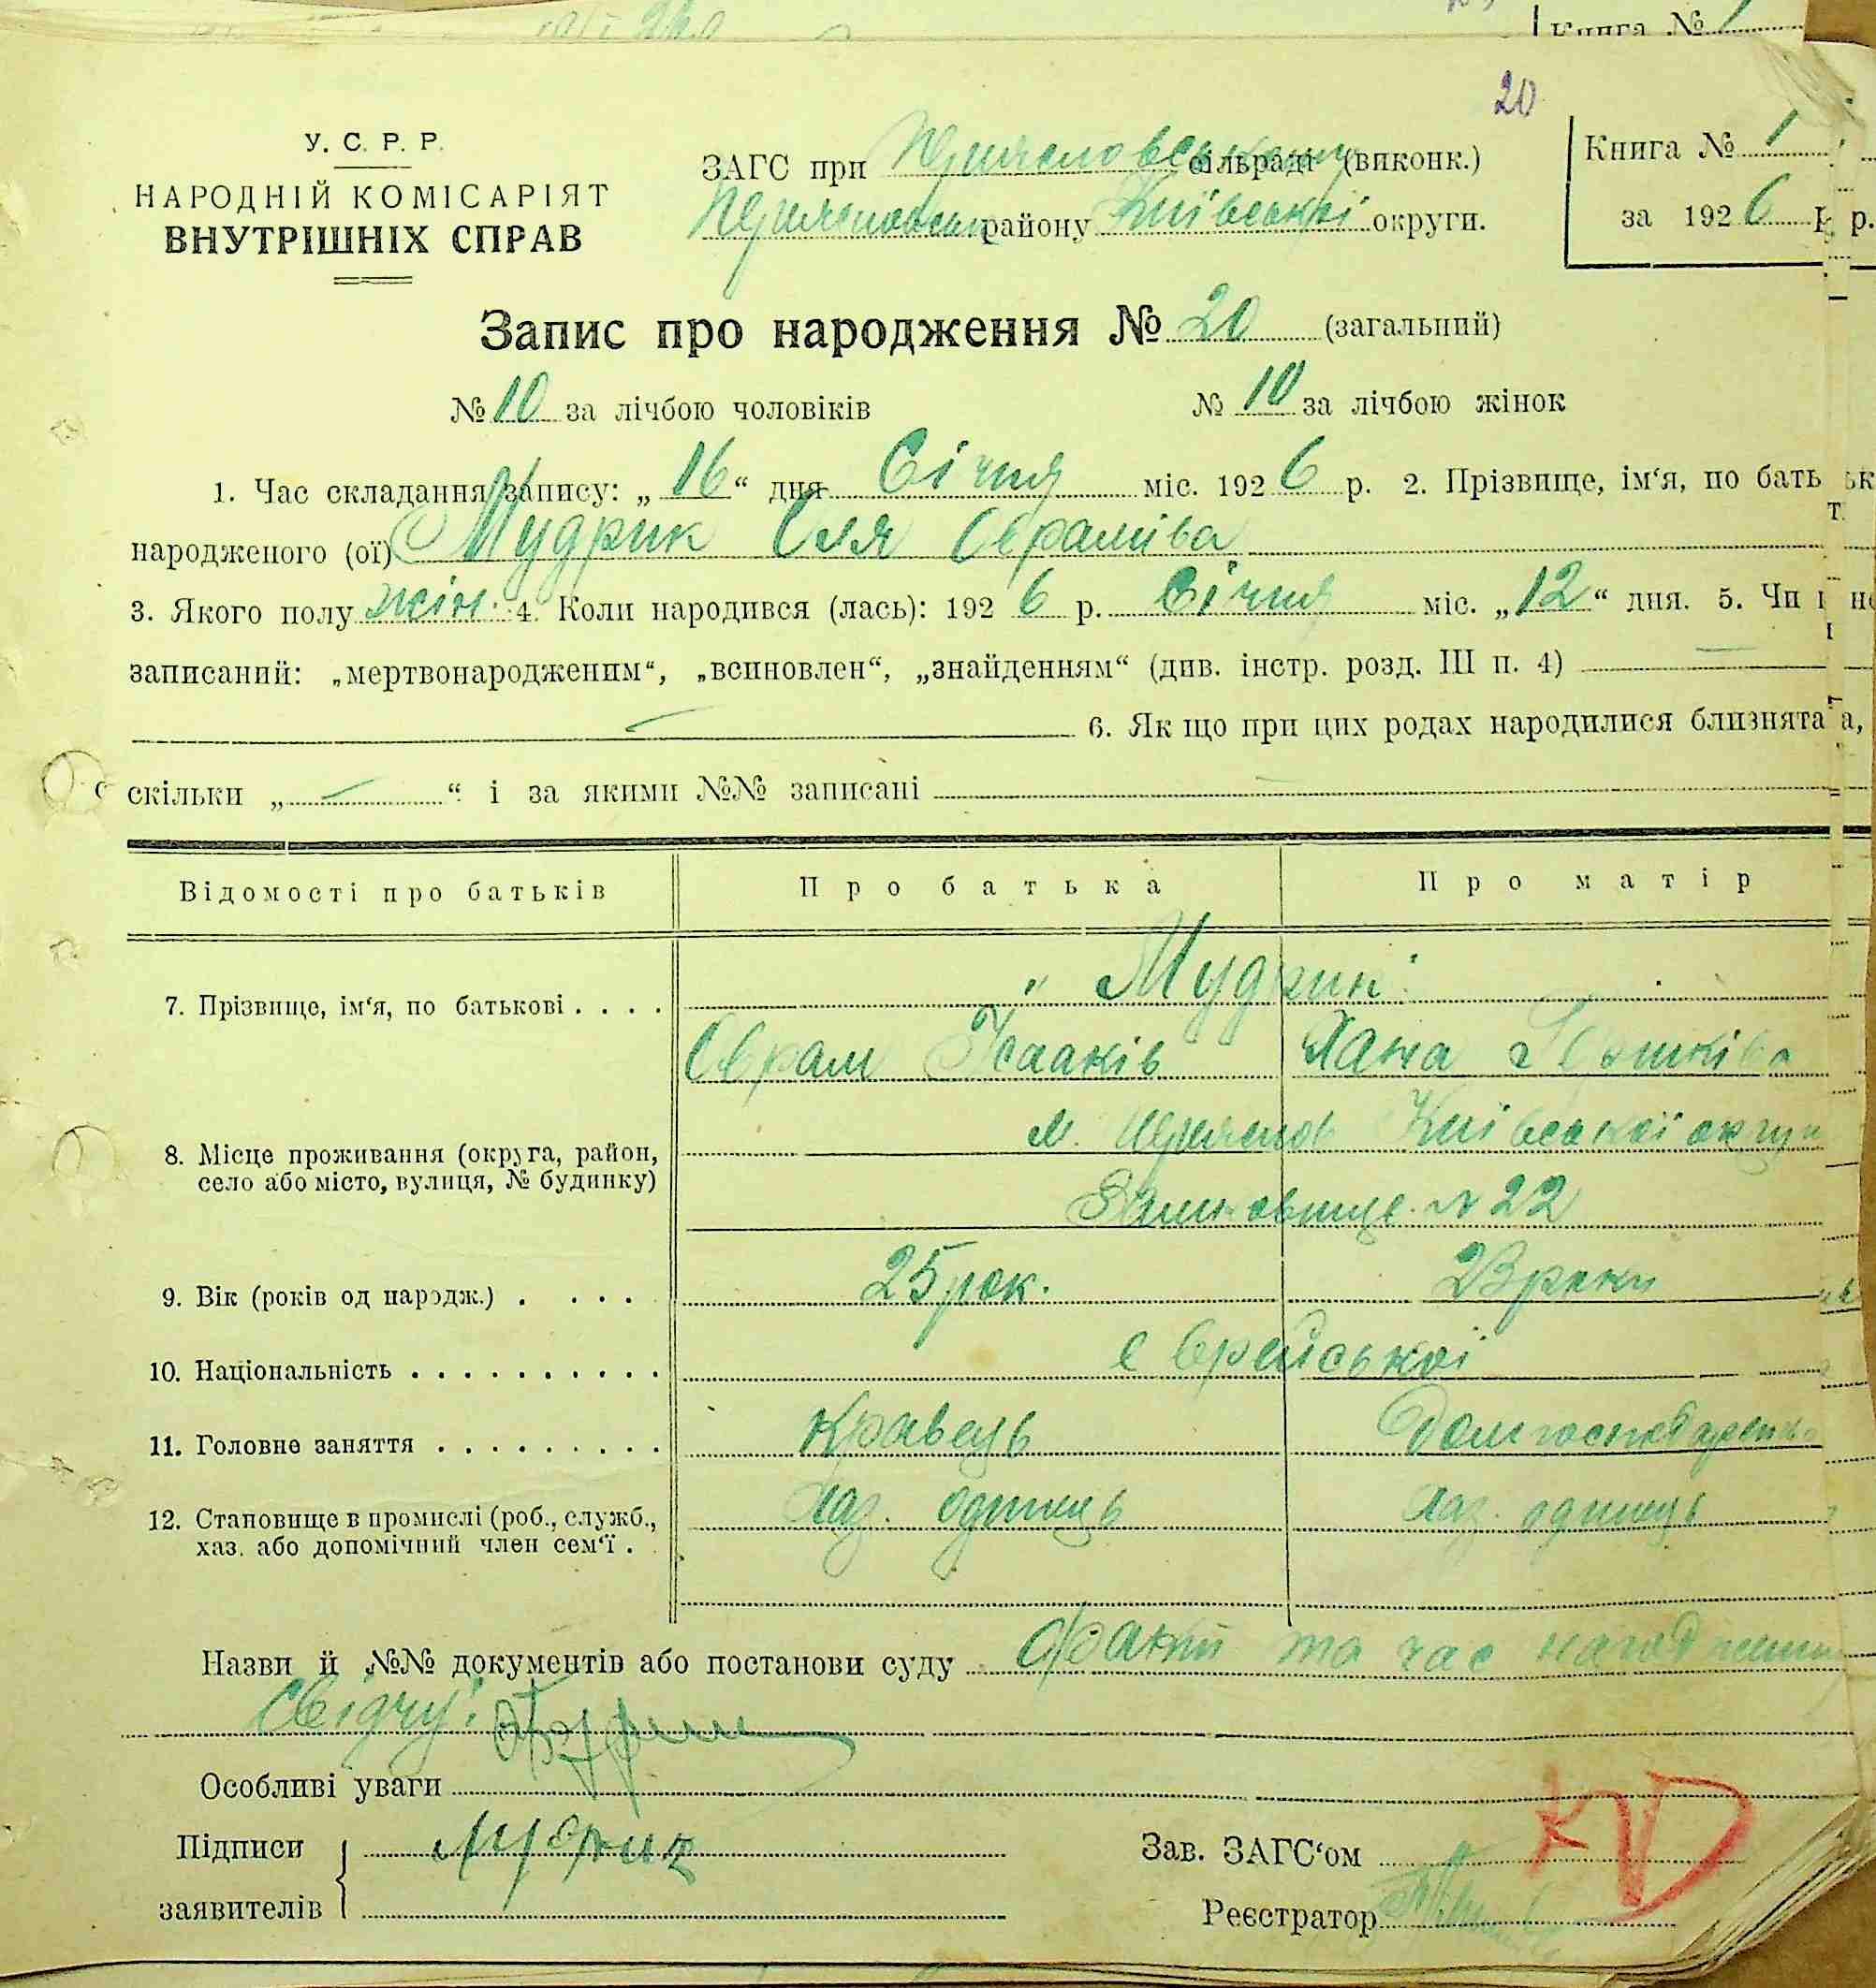 Книга №
20
У. С. Р. Р.
НАРОДНІЙ КОМІСАРІЯТ
ВНУТРІШНІХ СПРАВ
ЗАГС при сільраді (виконк.)
району Київської округи.
Книга № 1
за 1926 р.
Запис про народження № 20 (загальний)
№ 10 за лічбою чоловіків № 10 за лічбою жінок
1. Час складання запису: „16“ дня Січня міс. 1926 р. 2. Прізвище, ім‘я, по бать
народженого (ої) Мудрик Еля Аврамівa
3. Якого полу жін. 4. Коли народився (лась): 1926 р. Січня міс. „12“ дня. 5. Чи
записаний: „мертвонародженим“, „всиновлен“, „знайденням“ (див. інстр. розд. III п. 4) —
— 6. Як що при цих родах народилися близнята,
скільки „—“ і за якими №№ записані —
Відомості про батьків Про батька Про матір
7. Прізвище, ім‘я, по батькові . . . . Мудрик
Аврам Ісааків Хана
8. Місце проживання (округа, район, село або місто, вулиця, № будинку) м. Київської округи
№ 22
9. Вік (років од народж.) . . . . 25 рок. 23 роки
10. Національність . . . . . . . . . . Єврейської
11. Головне заняття . . . . . . . . . Кравець
12. Становище в промислі (роб., служб., хаз. або допомічний член сем‘ї . Хаз. одинець Хаз. одинець
Назви й №№ документів або постанови суду Факт та час народження
Свідчу:
Особливі уваги
Підписи Мудрик Зав. ЗАГС‘ом
заявителів Реєстратор